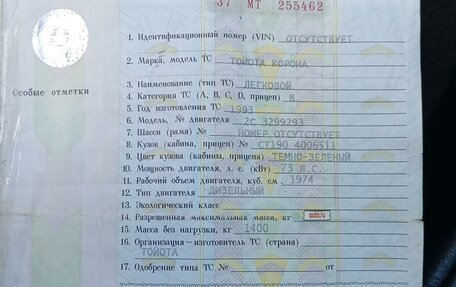 37 МТ 255462
1. Идентификационный номер (VIN) ОТСУТСТВУЕТ
2. Марка, модель ТС ТОЙОТА КОРОНА
3. Наименование (тип ТС) ЛЕГКОВОЙ
Особые отметки
4. Категория ТС (А, В, С, D, прицеп) В
5. Год изготовления ТС 1993
6. Модель, № двигателя 2С 3299293
7. Шасси (рама) № НОМЕР ОТСУТСТВУЕТ
8. Кузов (кабина, прицеп) № СТ190 4006511
9. Цвет кузова (кабины, прицепа) ТЕМНО-ЗЕЛЕНЫЙ
10. Мощность двигателя, л. с. (кВт) 73 Л.С.
11. Рабочий объем двигателя, куб. см 1974
12. Тип двигателя ДИЗЕЛЬНЫЙ
13. Экологический класс
14. Разрешенная максимальная масса, кг
auto.ru
15. Масса без нагрузки, кг 1400
16. Организация—изготовитель ТС (страна)
ТОЙОТА
17. Одобрение типа ТС № от